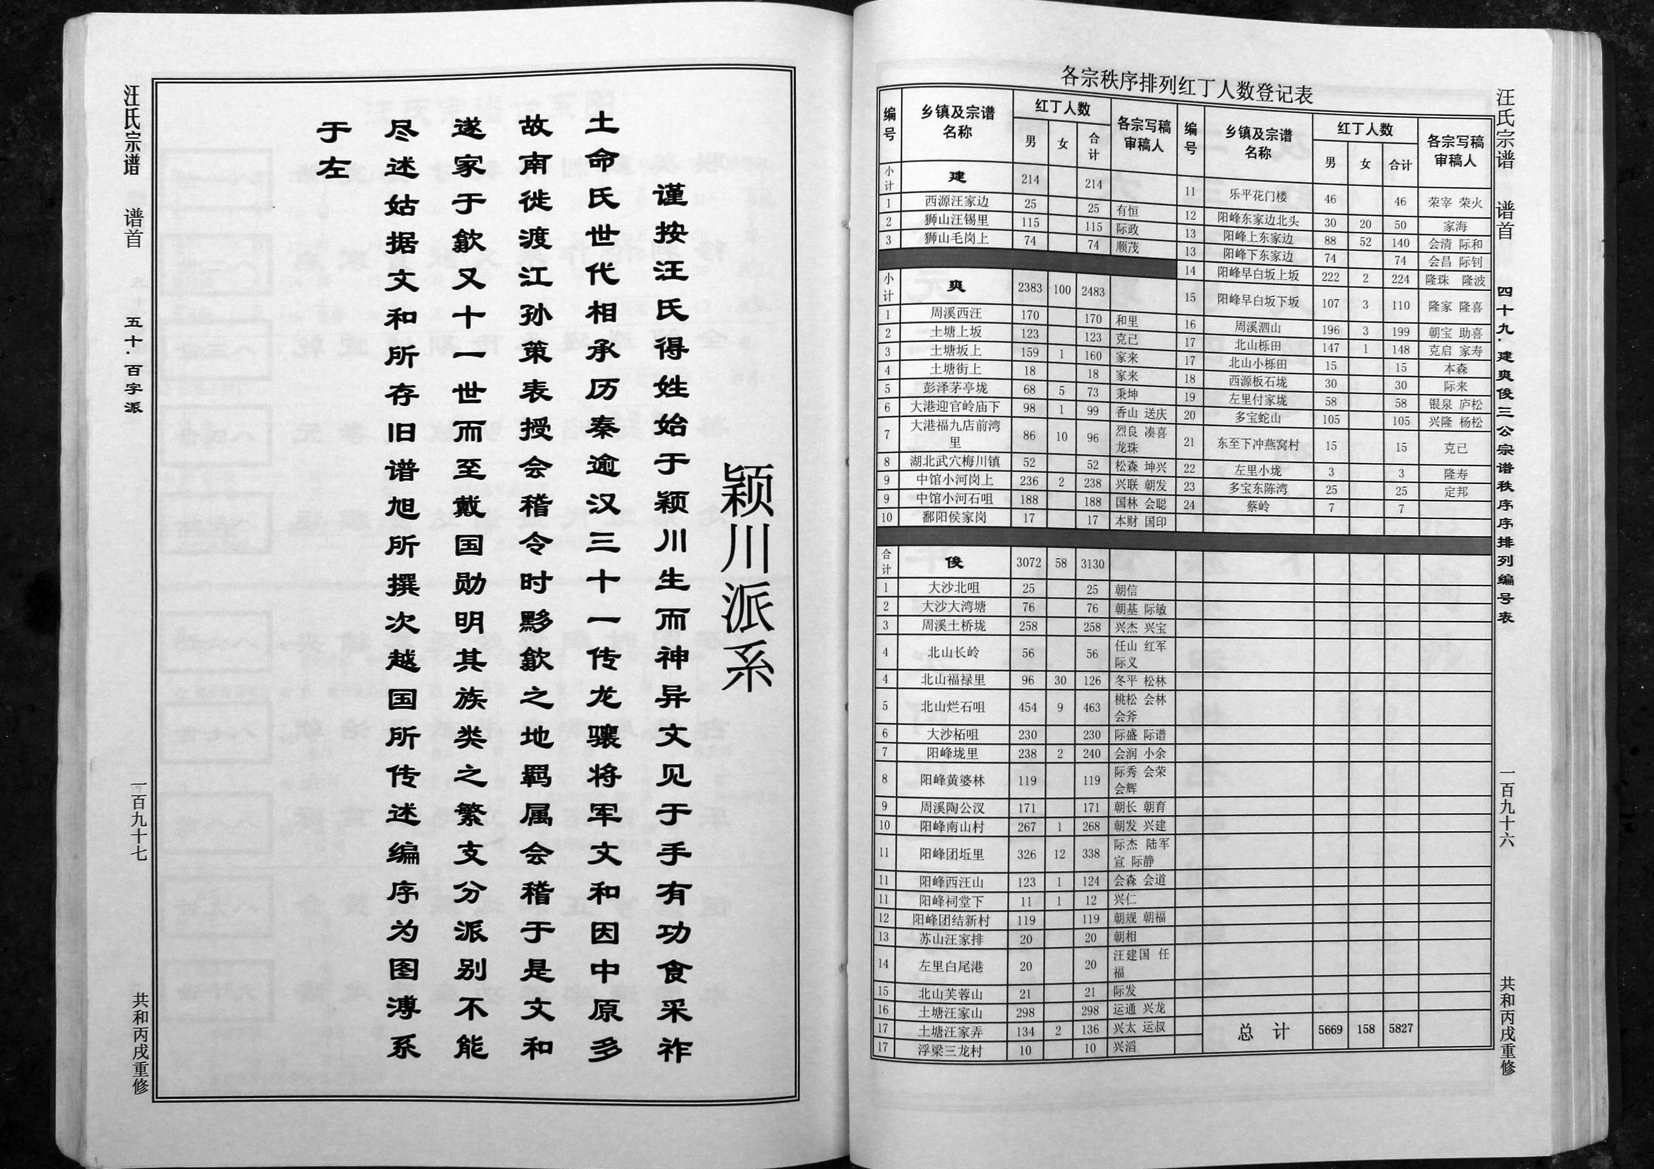 各宗秩序排列红丁人数登记表
编号 乡镇及宗谱名称 红丁人数 男 女 合计 各宗写稿审稿人
小计 建 214 214
1 西源汪家边 25 25 有恒
2 狮山汪锡里 115 115 际政
3 狮山毛岗上 74 74 顺茂
小计 爽 2383 100 2483
1 周溪西汪 170 170 和里
2 土塘上坂 123 123 克己
3 土塘坂上 159 1 160 家来
4 土塘街上 18 18 家来
5 彭泽茅亭垅 68 5 73 秉坤
6 大港迎官岭庙下 98 1 99 香山 送庆
7 大港福九店前湾里 86 10 96 烈良 凑喜 龙珠
8 湖北武穴梅川镇 52 52 松森 坤兴
9 中馆小河岗上 236 2 238 兴联 朝发
9 中馆小河石咀 188 188 国林 会聪
10 鄱阳侯家岗 17 17 本财 国印
合计 俊 3072 58 3130
1 大沙北咀 25 25 朝信
2 大沙大湾塘 76 76 朝基 际敏
3 周溪土桥垅 258 258 兴杰 兴宝
4 北山长岭 56 56 任山 红军 际义
4 北山福禄里 96 30 126 冬平 松林
5 北山烂石咀 454 9 463 桃松 会林 会斧
6 大沙柘咀 230 230 际盛 际谱
7 阳峰垅里 238 2 240 会润 小余
8 阳峰黄婆林 119 119 际秀 会荣 会辉
9 周溪陶公汊 171 171 朝长 朝育
10 阳峰南山村 267 1 268 朝发 兴建
11 阳峰团坵里 326 12 338 际杰 陆军 宣 际静
11 阳峰西汪山 123 1 124 会森 会道
11 阳峰祠堂下 11 1 12 兴仁
12 阳峰团结新村 119 119 朝规 朝福
13 苏山汪家排 20 20 朝相
14 左里白尾港 20 20 汪建国 任福
15 北山芙蓉山 21 21 际发
16 土塘汪家山 298 298 运通 兴龙
17 土塘汪家弄 134 2 136 兴太 运叔
17 浮梁三龙村 10 10 兴滔
编号 乡镇及宗谱名称 红丁人数 男 女 合计 各宗写稿审稿人
11 乐平花门楼 46 46 荣宰 荣火
12 阳峰东家边北头 30 20 50 家海
13 阳峰上东家边 88 52 140 会清 际和
13 阳峰下东家边 74 74 会昌 际钊
14 阳峰早白坂上坂 222 2 224 隆珠 隆波
15 阳峰早白坂下坂 107 3 110 隆家 隆喜
16 周溪泗山 196 3 199 朝宝 助喜
17 北山栎田 147 1 148 克启 家寿
17 北山小栎田 15 15 本森
18 西源板石垅 30 30 际来
19 左里付家垅 58 58 银泉 庐松
20 多宝蛇山 105 105 兴隆 杨松
21 东至下冲燕窝村 15 15 克己
22 左里小垅 3 3 隆寿
23 多宝东陈湾 25 25 定邦
24 蔡岭 7 7
总计 5669 158 5827
汪氏宗谱 谱首 四十九·建爽俊三公宗谱秩序序排列编号表 一百九十六 共和丙戌重修
颍川派系
谨按汪氏得姓始于颍川生而神异文见于手有功食采祚
土命氏世代相承历秦逾汉三十一传龙骧将军文和因中原多
故南徙渡江孙策表授会稽令时黟歙之地羁属会稽于是文和
遂家于歙又十一世而至戴国勋明其族类之繁支分派别不能
尽述姑据文和所存旧谱旭所撰次越国所传述编序为图溥系
于左
汪氏宗谱 谱首 五十·百字派 一百九十七 共和丙戌重修